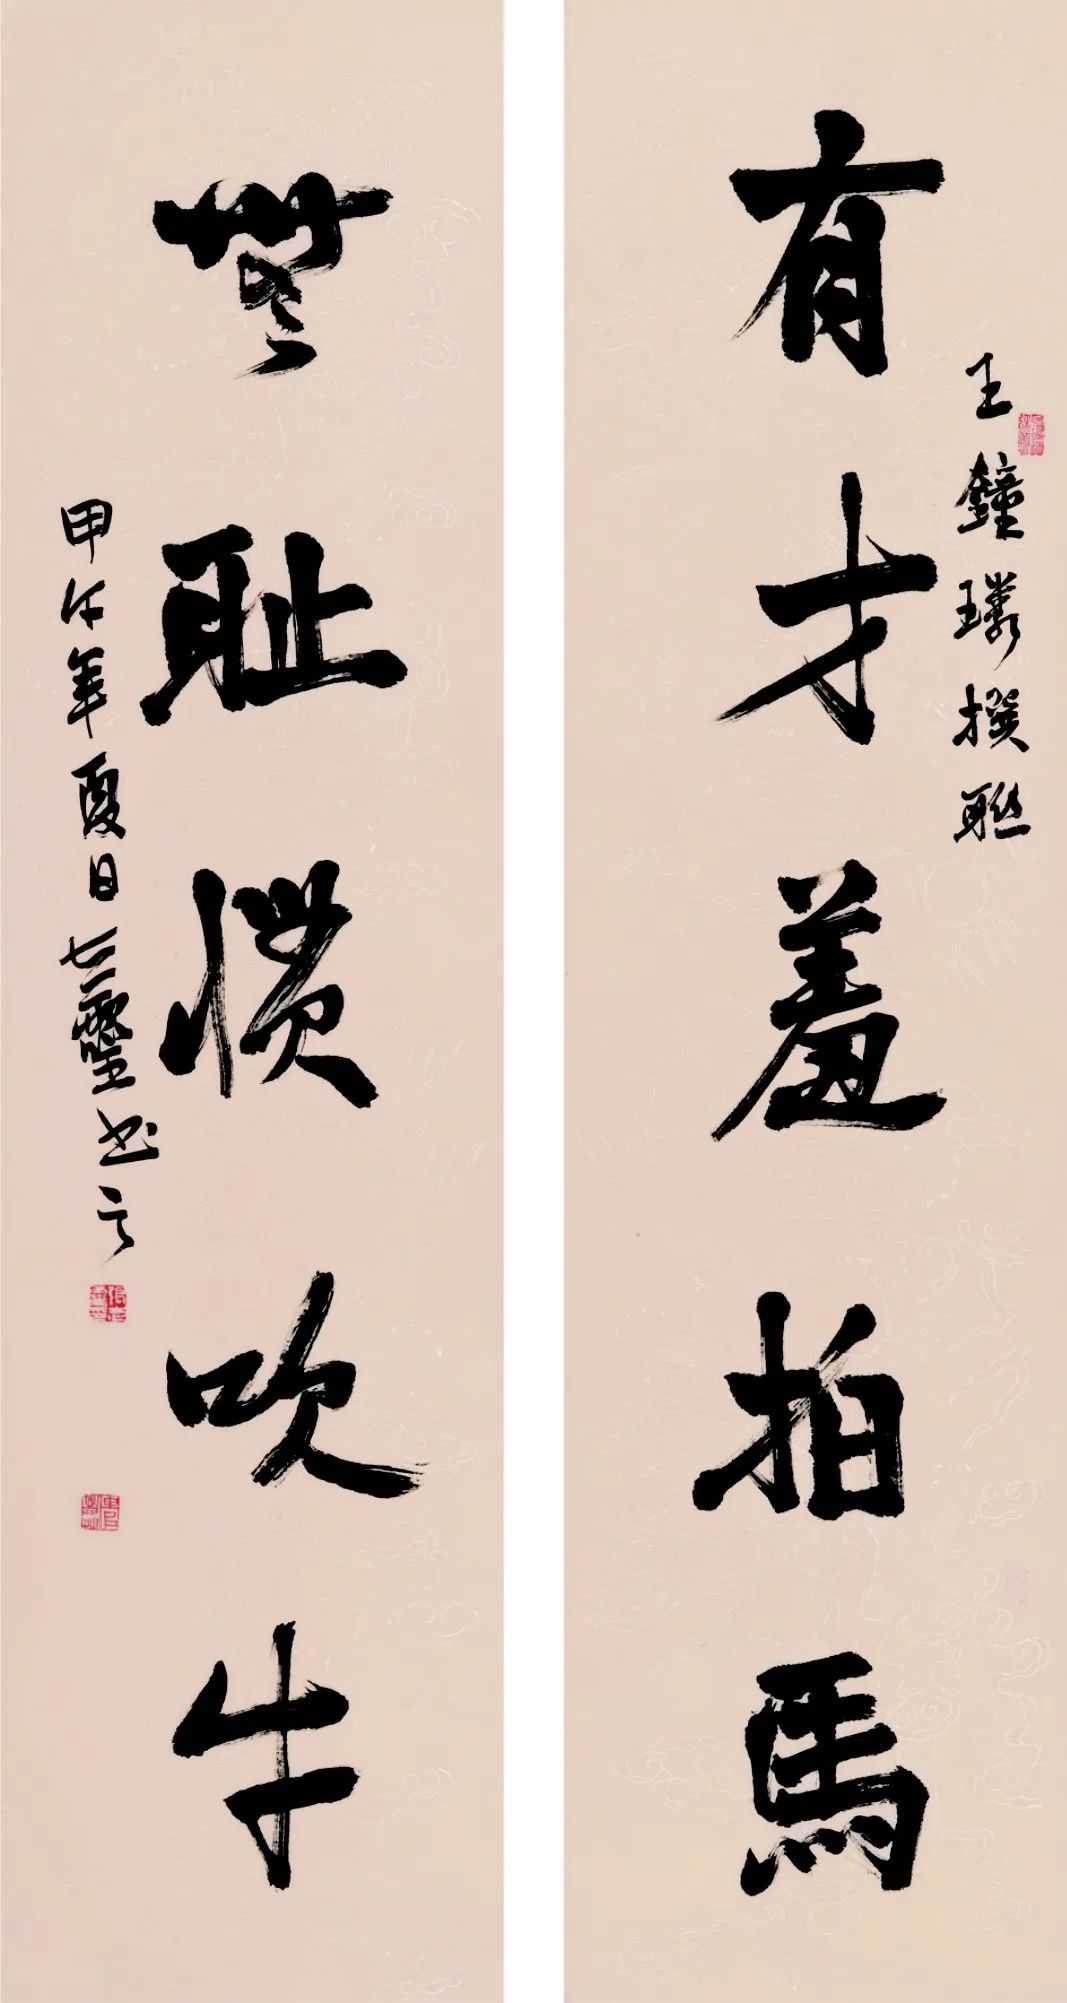 有才羞拍馬
王鐘璨撰聯
無耻慣吹牛
甲午年夏日七二靈书之